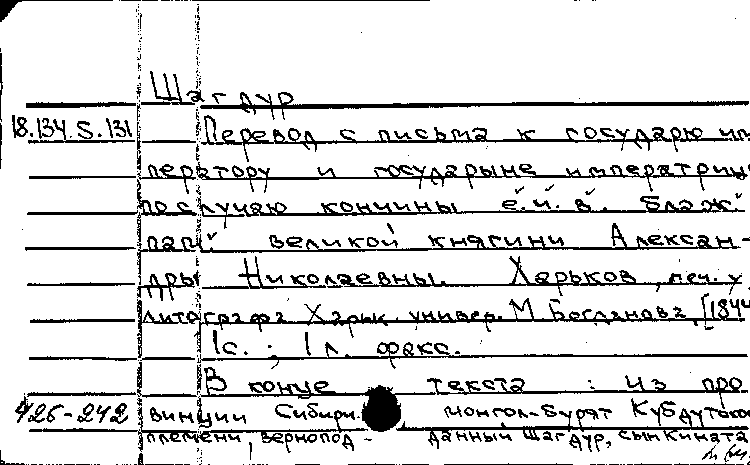 Шагдур
18.134.5.131 Перевод с письма к государю им
ператору и государыне императриц
по случаю кончины е. и. в. блаж.
пам. великой княгини Алексан-
дры Николаевны. Харьков, печ. у
литографа Харьк. универ. М. Богданова, [1844
1 с.; 1 л. факс.
В конце текста: из про
винции Сибири. монгол-бурят Кубдутско
426-242
племени, верпопод- данный Шагдур, сын Кината